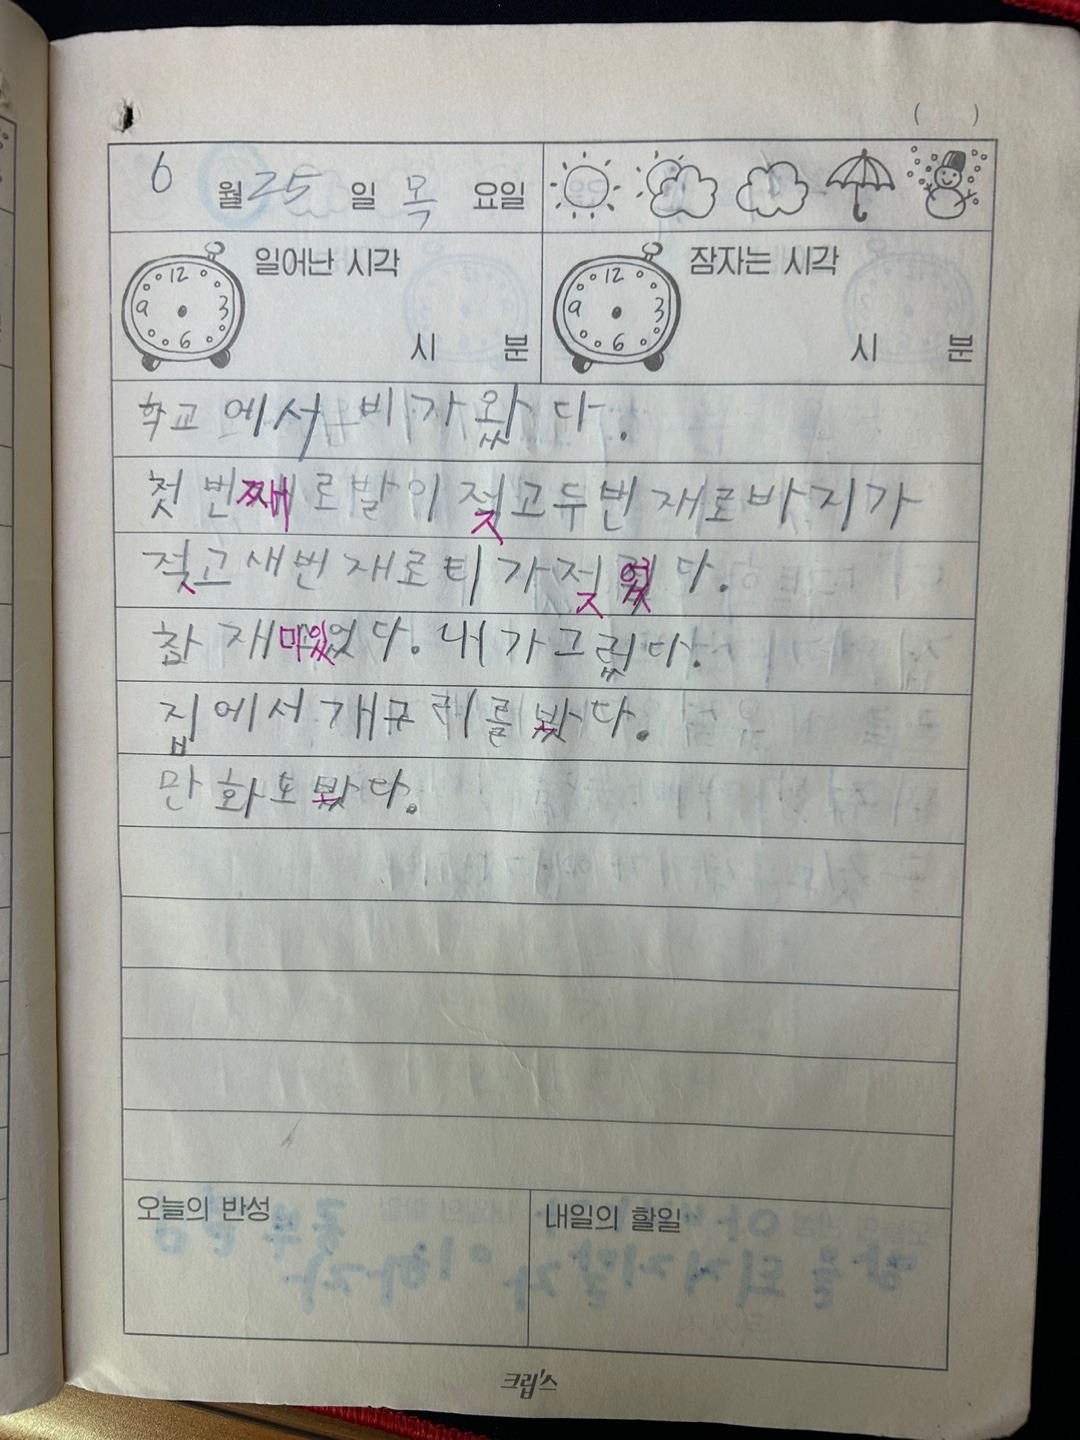 ( )
6 월 25 일 목 요일
일어난 시각
12 3 6 9
시 분
잠자는 시각
12 3 6 9
시 분
학교에서 비가왔다.
첫번째로발이 젖고두번재로바지가
젖고새번재로티가젖었다.
참재미있었다. 내가그렀다.
집에서개구리를봤다.
만화도봤다.
오늘의 반성
내일의 할일
크립스